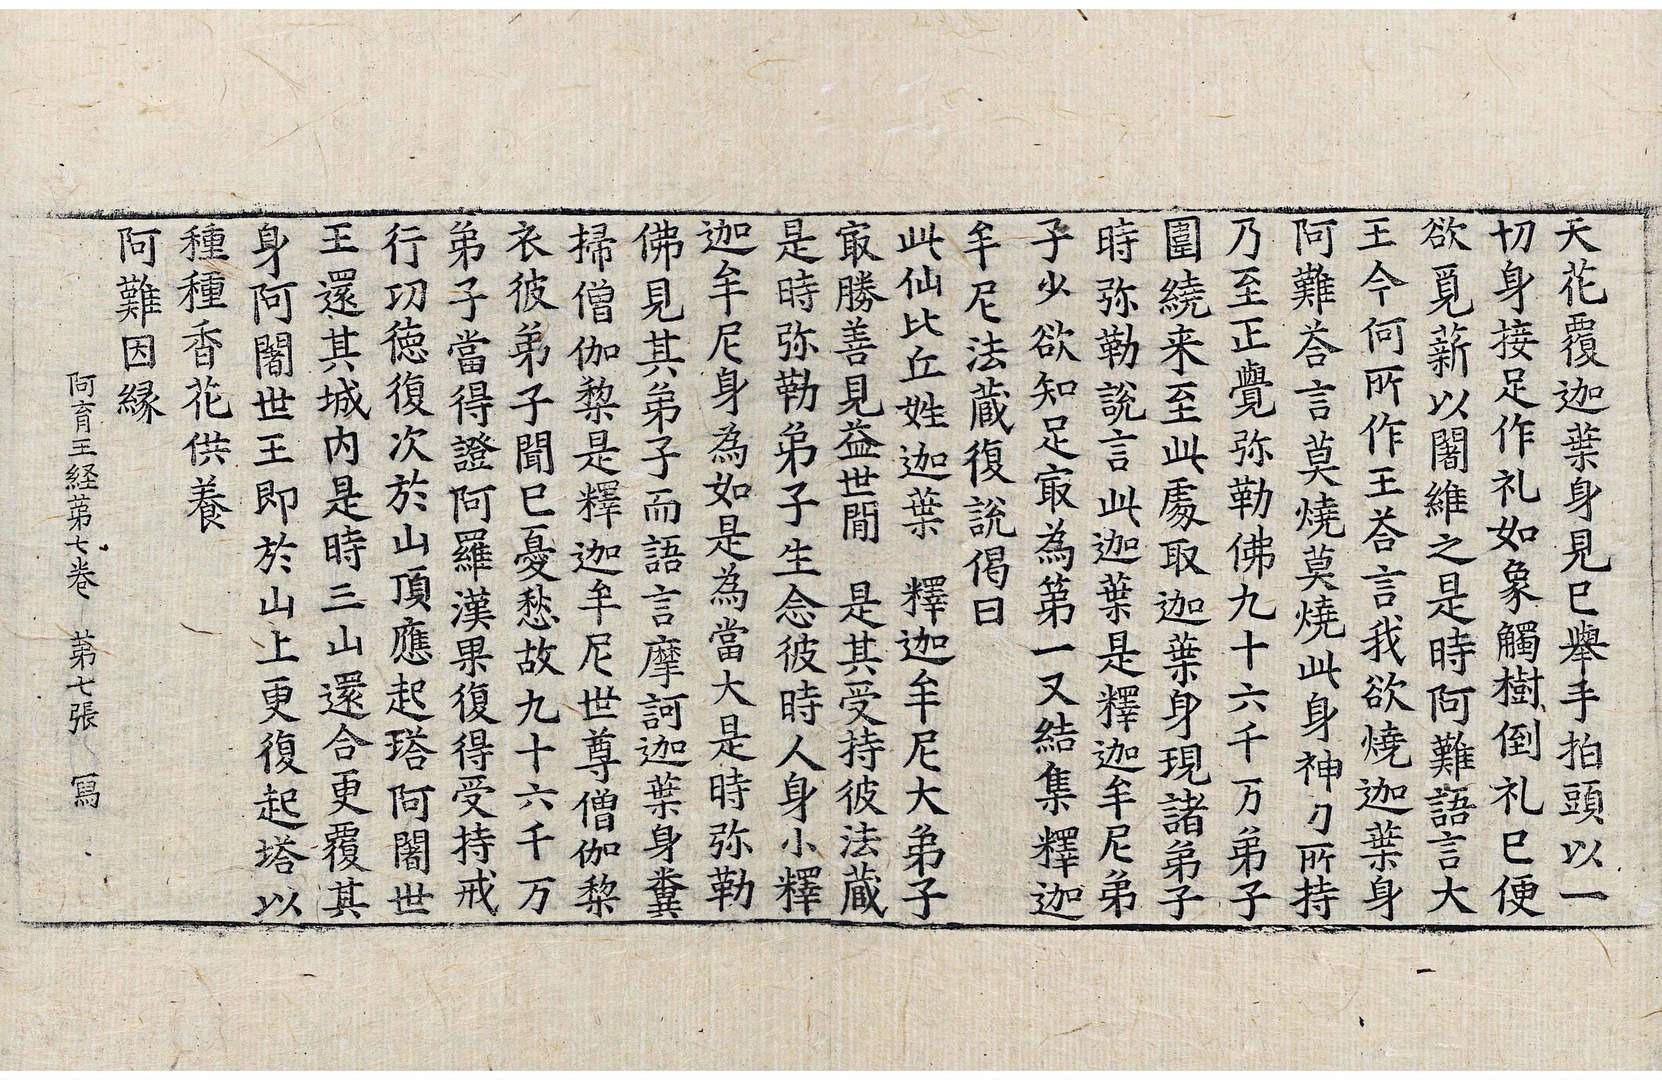 天花覆迦葉身見已舉手拍頭以一
切身接足作礼如象觸樹倒礼已便
欲覓薪以闍維之是時阿難語言大
王今何所作王荅言我欲燒迦葉身
阿難荅言莫燒莫燒此身神力所持
乃至正覺弥勒佛九十六千万弟子
圍繞来至此處取迦葉身現諸弟子
時弥勒說言此迦葉是釋迦牟尼弟
子少欲知足㝡為第一又結集釋迦
牟尼法蔵復說偈曰
此仙比丘姓迦葉　釋迦牟尼大弟子
㝡勝善見益世間　是其受持彼法蔵
是時弥勒弟子生念彼時人身小釋
迦牟尼身為如是為當大是時弥勒
佛見其弟子而語言摩訶迦葉身糞
掃僧伽棃是釋迦牟尼世尊僧伽棃
衣彼弟子聞已憂愁故九十六千万
弟子當得證阿羅漢果復得受持戒
行功徳復次於山頂應起塔阿闍世
王還其城内是時三山還合更覆其
身阿闍世王即於山上更復起塔以
種種香花供養
阿難因緣
阿育王経第七卷　第七張　寫